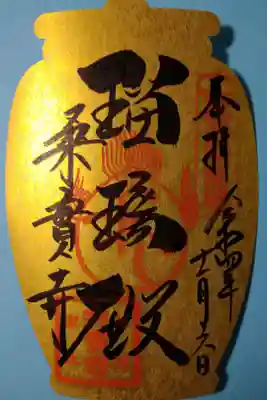 奉拝
令和四年十一月六日
瑠璃殿
乗寶寺